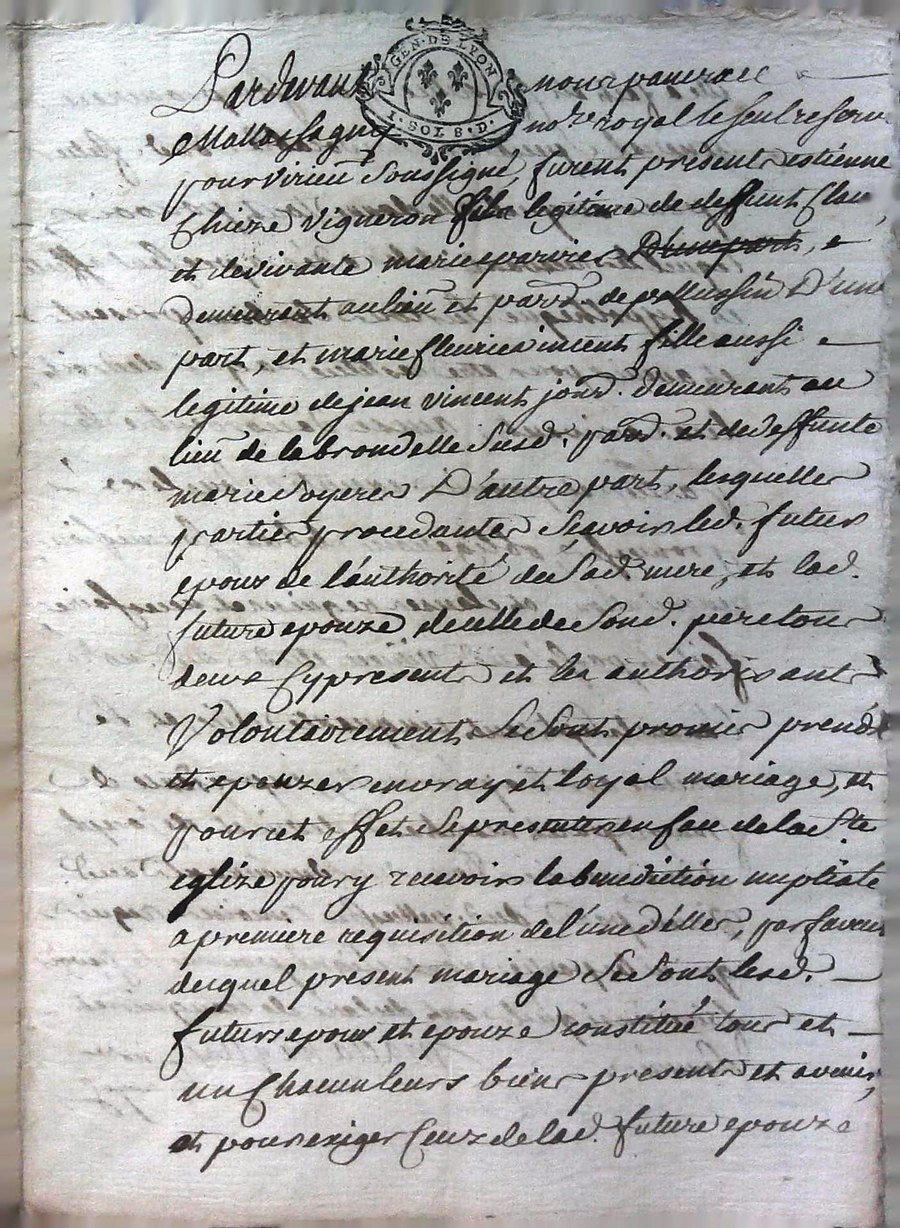 GEN·DE LYON
1·SOL 8·D·
Pardevant nous pancrace
Mattassaguy no.re royal le seul reserve
pour virieu soussigné furent presents estienne
Chieze vigneron fils legitime de deffunt Clau,
et de vivante marie parvier D'une part, e
demeurant au lieu et parro. de pellussin D'une
part, et marie fleurie vincent fille aussi
legitime de jean vincent jour. demeurant au
lieu de la brondelle susd. parro. et de deffunte
marie soyere D'autre part, lesquelles
parties procedantes sçavoir led. futur
epoux de l'authorité de sad. mere, et lad.
future epouze de celle de sond. pere tous
deux cy presents et les authorisants
Volontairement se sont promis prendre
et epouzer en vray et loyal mariage, et
pour cet effet se presenter en face de la Ste
eglize pour y recevoir la benediction nuptiale
a premiere requisition de l'une d'elles, par faveur
duquel present mariage se sont lesd.
futurs epoux et epouze constitué tous et
un Chacun leurs biens presents et avenir,
et pour exiger Ceux de lad. future epouze